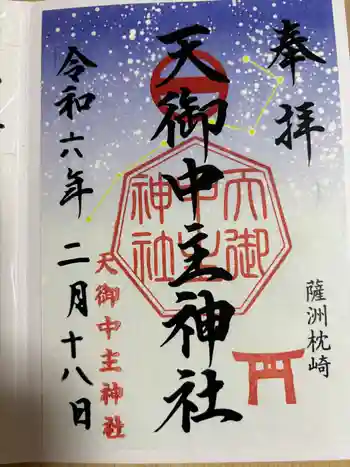 奉拝
天御中主神社
天御中主神社
薩洲枕崎
令和六年二月十八日
天御中主神社